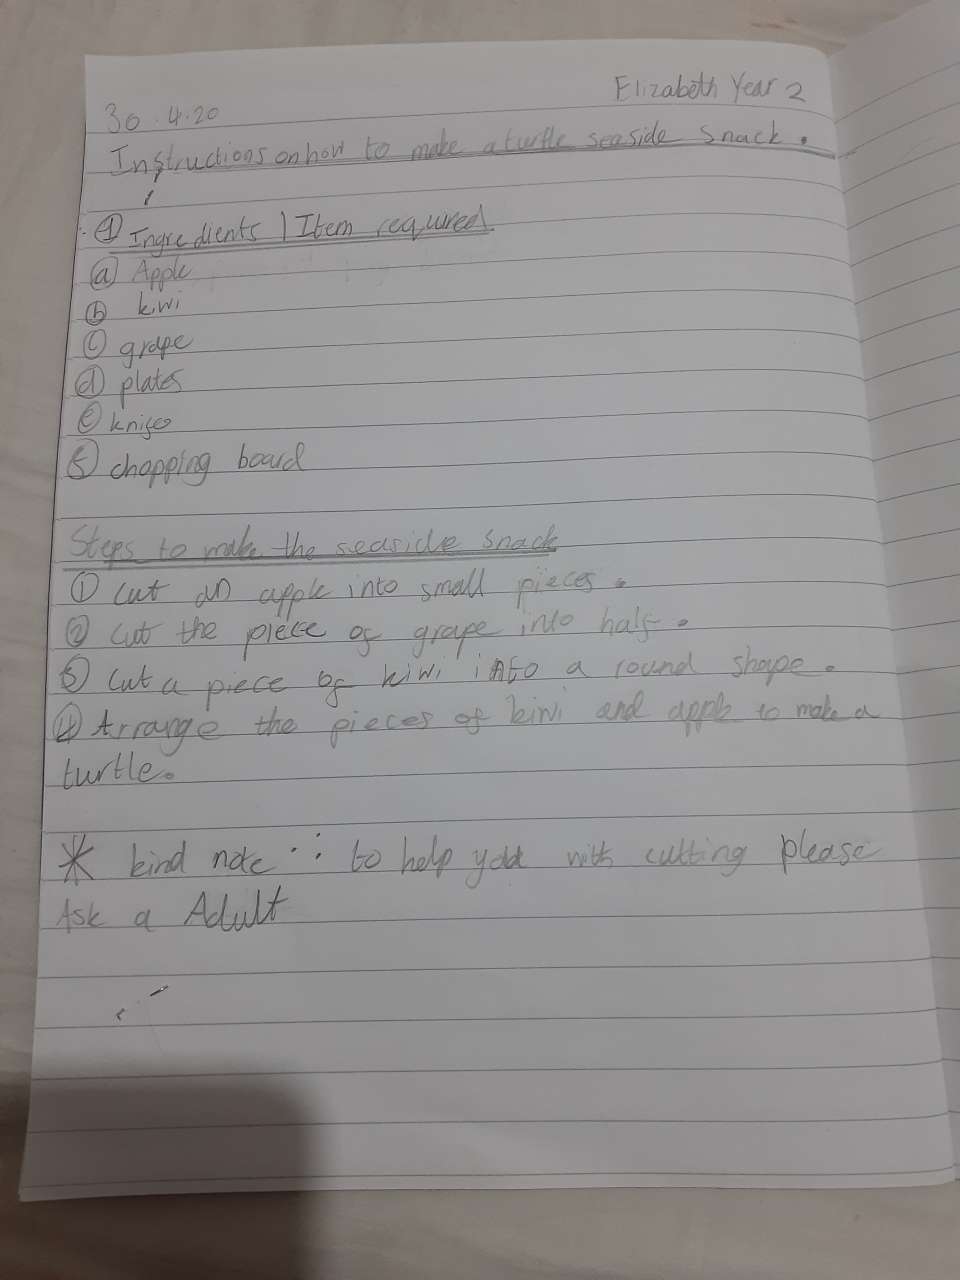 Elizabeth Year 2
30.4.20
Instructions on how to make a turtle seaside snack.
① Ingredients / Item required
ⓐ Apple
ⓑ kiwi
ⓒ grape
ⓓ plates
ⓔ knife
ⓕ chopping board
Steps to make the seaside snack
① cut an apple into small pieces.
② cut the piece of grape into half.
③ cut a piece of kiwi into a round shape.
④ Arrange the pieces of kiwi and apple to make a
turtle.
* kind note : to help you with cutting please
Ask a Adult